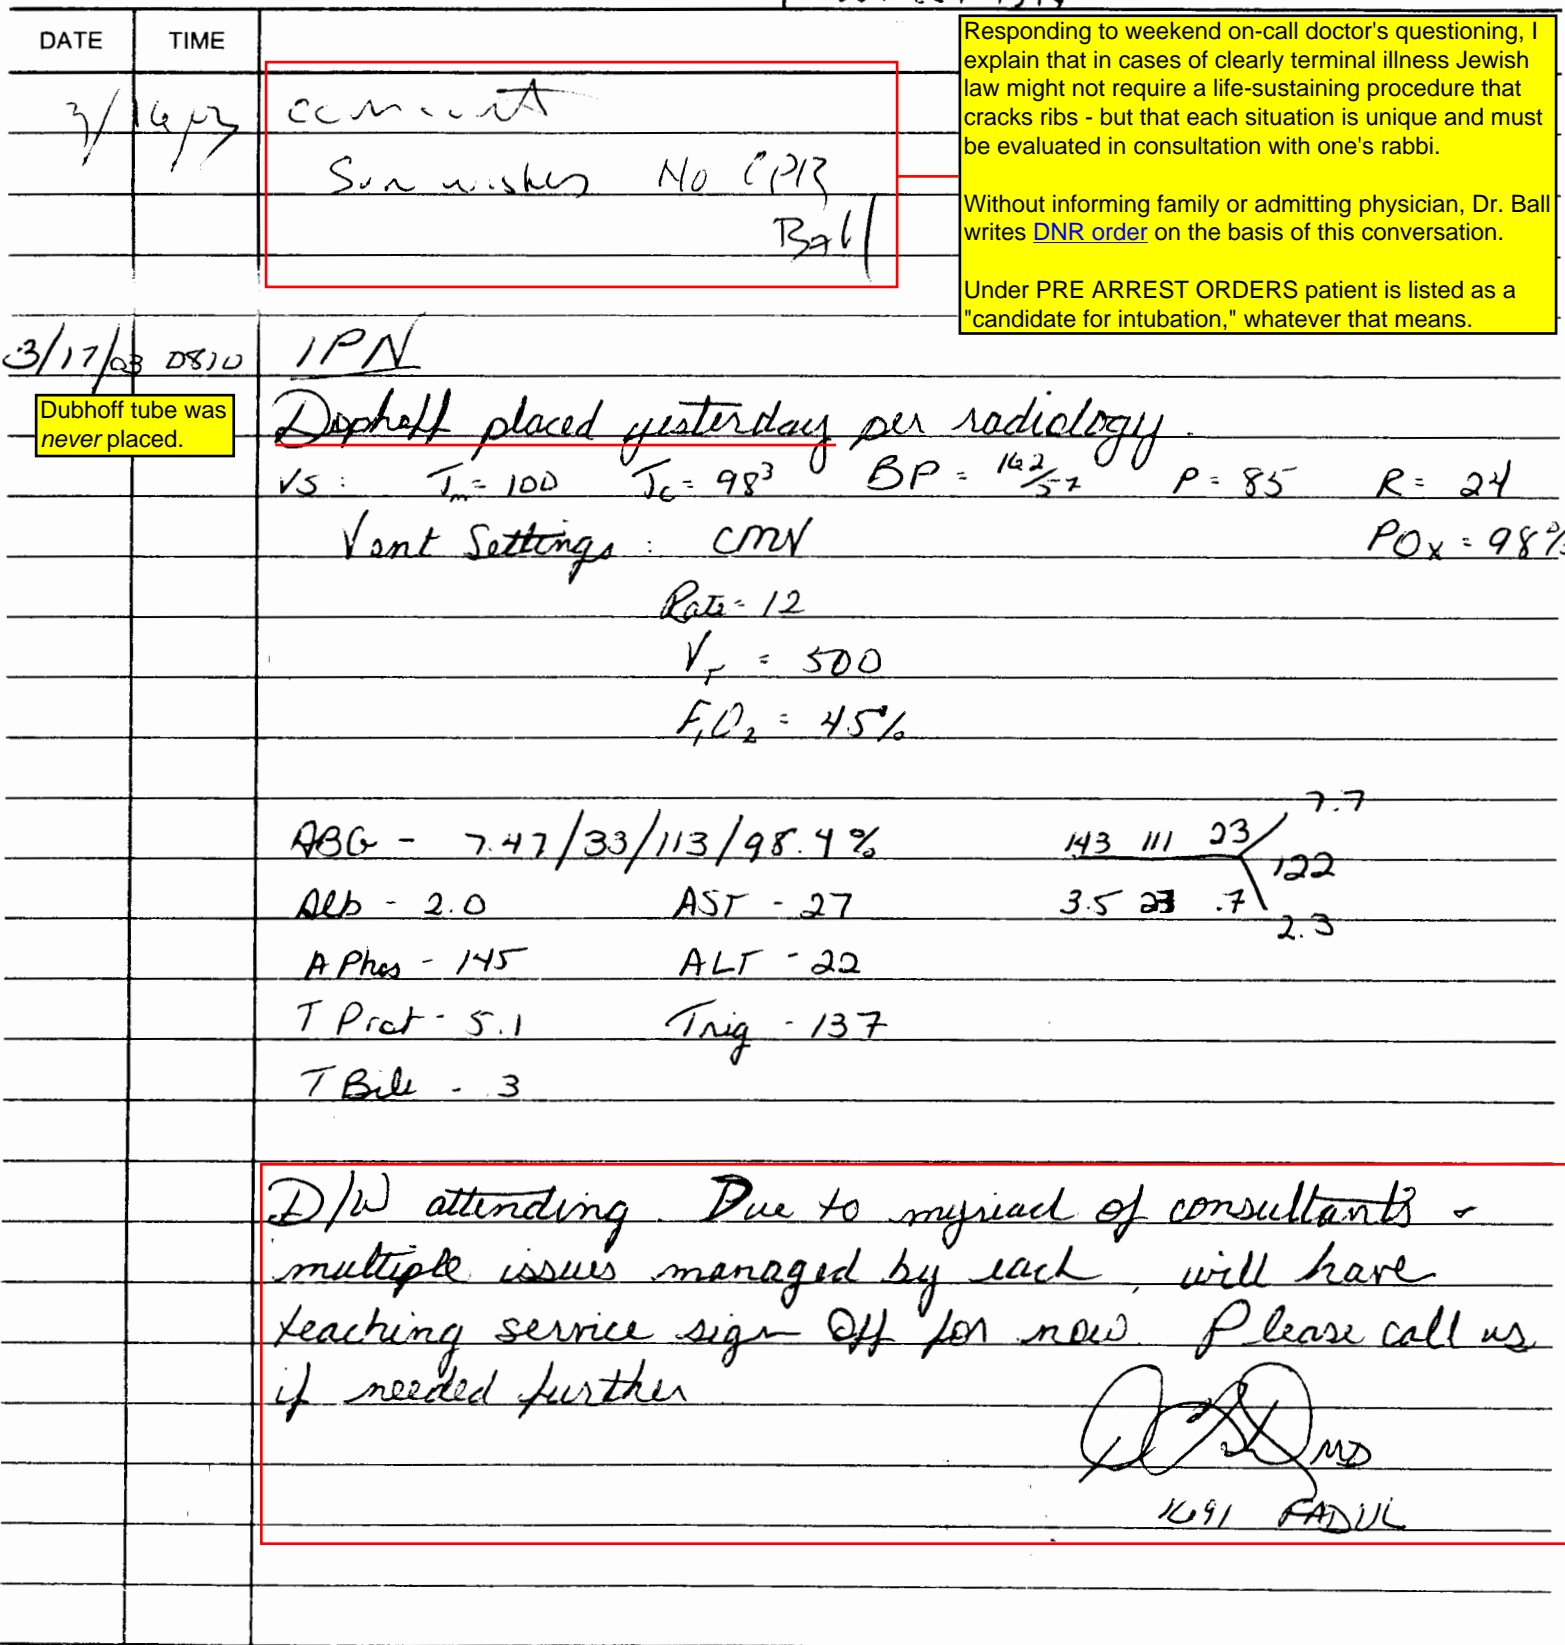 DATE TIME
Responding to weekend on-call doctor's questioning, I
explain that in cases of clearly terminal illness Jewish
law might not require a life-sustaining procedure that
cracks ribs - but that each situation is unique and must
be evaluated in consultation with one's rabbi.
Without informing family or admitting physician, Dr. Ball
writes DNR order on the basis of this conversation.
Under PRE ARREST ORDERS patient is listed as a
"candidate for intubation," whatever that means.
3/16/03
Son wishes No CPR
Ball
3/17/03 0810 IPN
Dubhoff tube was
never placed.
Dophoff placed yesterday per radiology.
VS: Tm= 100 Tc= 98³ BP= 162/57 P= 85 R= 24
Vent Settings: CMV POx = 98%
Rate= 12
VT = 500
FIO2 = 45%
7.7
ABG - 7.47/33/113/98.4% 143 111 23
122
Alb - 2.0 AST - 27 3.5 23 .7
2.3
A Phos - 145 ALT - 22
T Prot - 5.1 Trig - 137
T Bili - 3
D/W attending. Due to myriad of consultants &
multiple issues managed by each, will have
teaching service sign off for now. Please call us
if needed further
MD
1691 FADUL